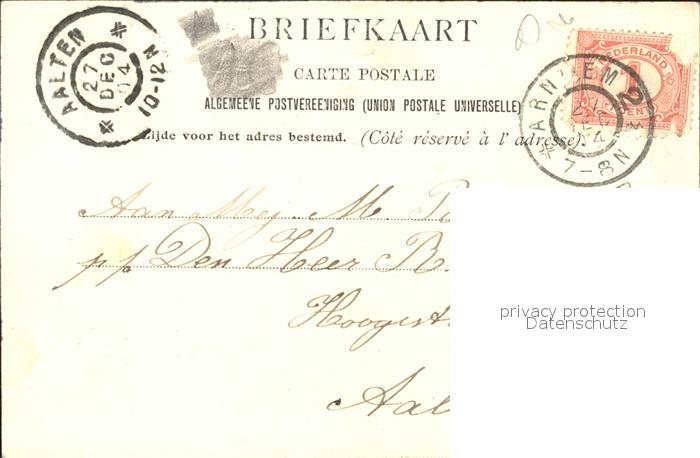 BRIEFKAART
CARTE POSTALE
ALGEMEENE POSTVEREENIGING (UNION POSTALE UNIVERSELLE)
Zijde voor het adres bestemd. (Côté réservé à l'adresse).
AALTEN
27
DEC
04
10-12 N
NEDERLAND
1
CENT
ARNHEM 2
7-8 N
Aan Mej. M.
p/f Den Heer R.
Hoogest
Aal
privacy protection
Datenschutz